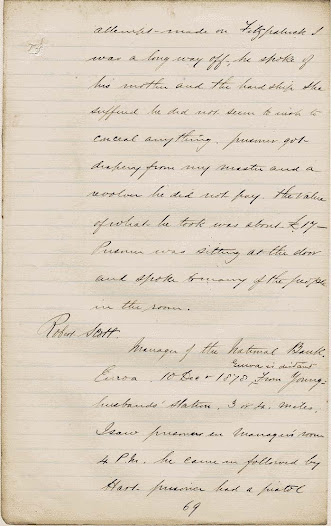 attempt – made on Fitzpatrick I
was a long way off, he spoke of
his mother and the hardships she
suffered he did not seem to wish to
conceal anything. prisoner got
drapery from my master and a
revolver he did not pay. the value
of what he took was about £17 –
Prisoner was sitting at the door
and spoke to many of the people
in the room.
Robert Scott.
Manager of the National Bank.
Euroa is distant
Euroa. 10 Dec 1878, From Young-
husbands' Station. 3 or 4. miles.
I saw prisoner in managers room
4 P.M. he came in followed by
Hart. prisoner had a pistol
69